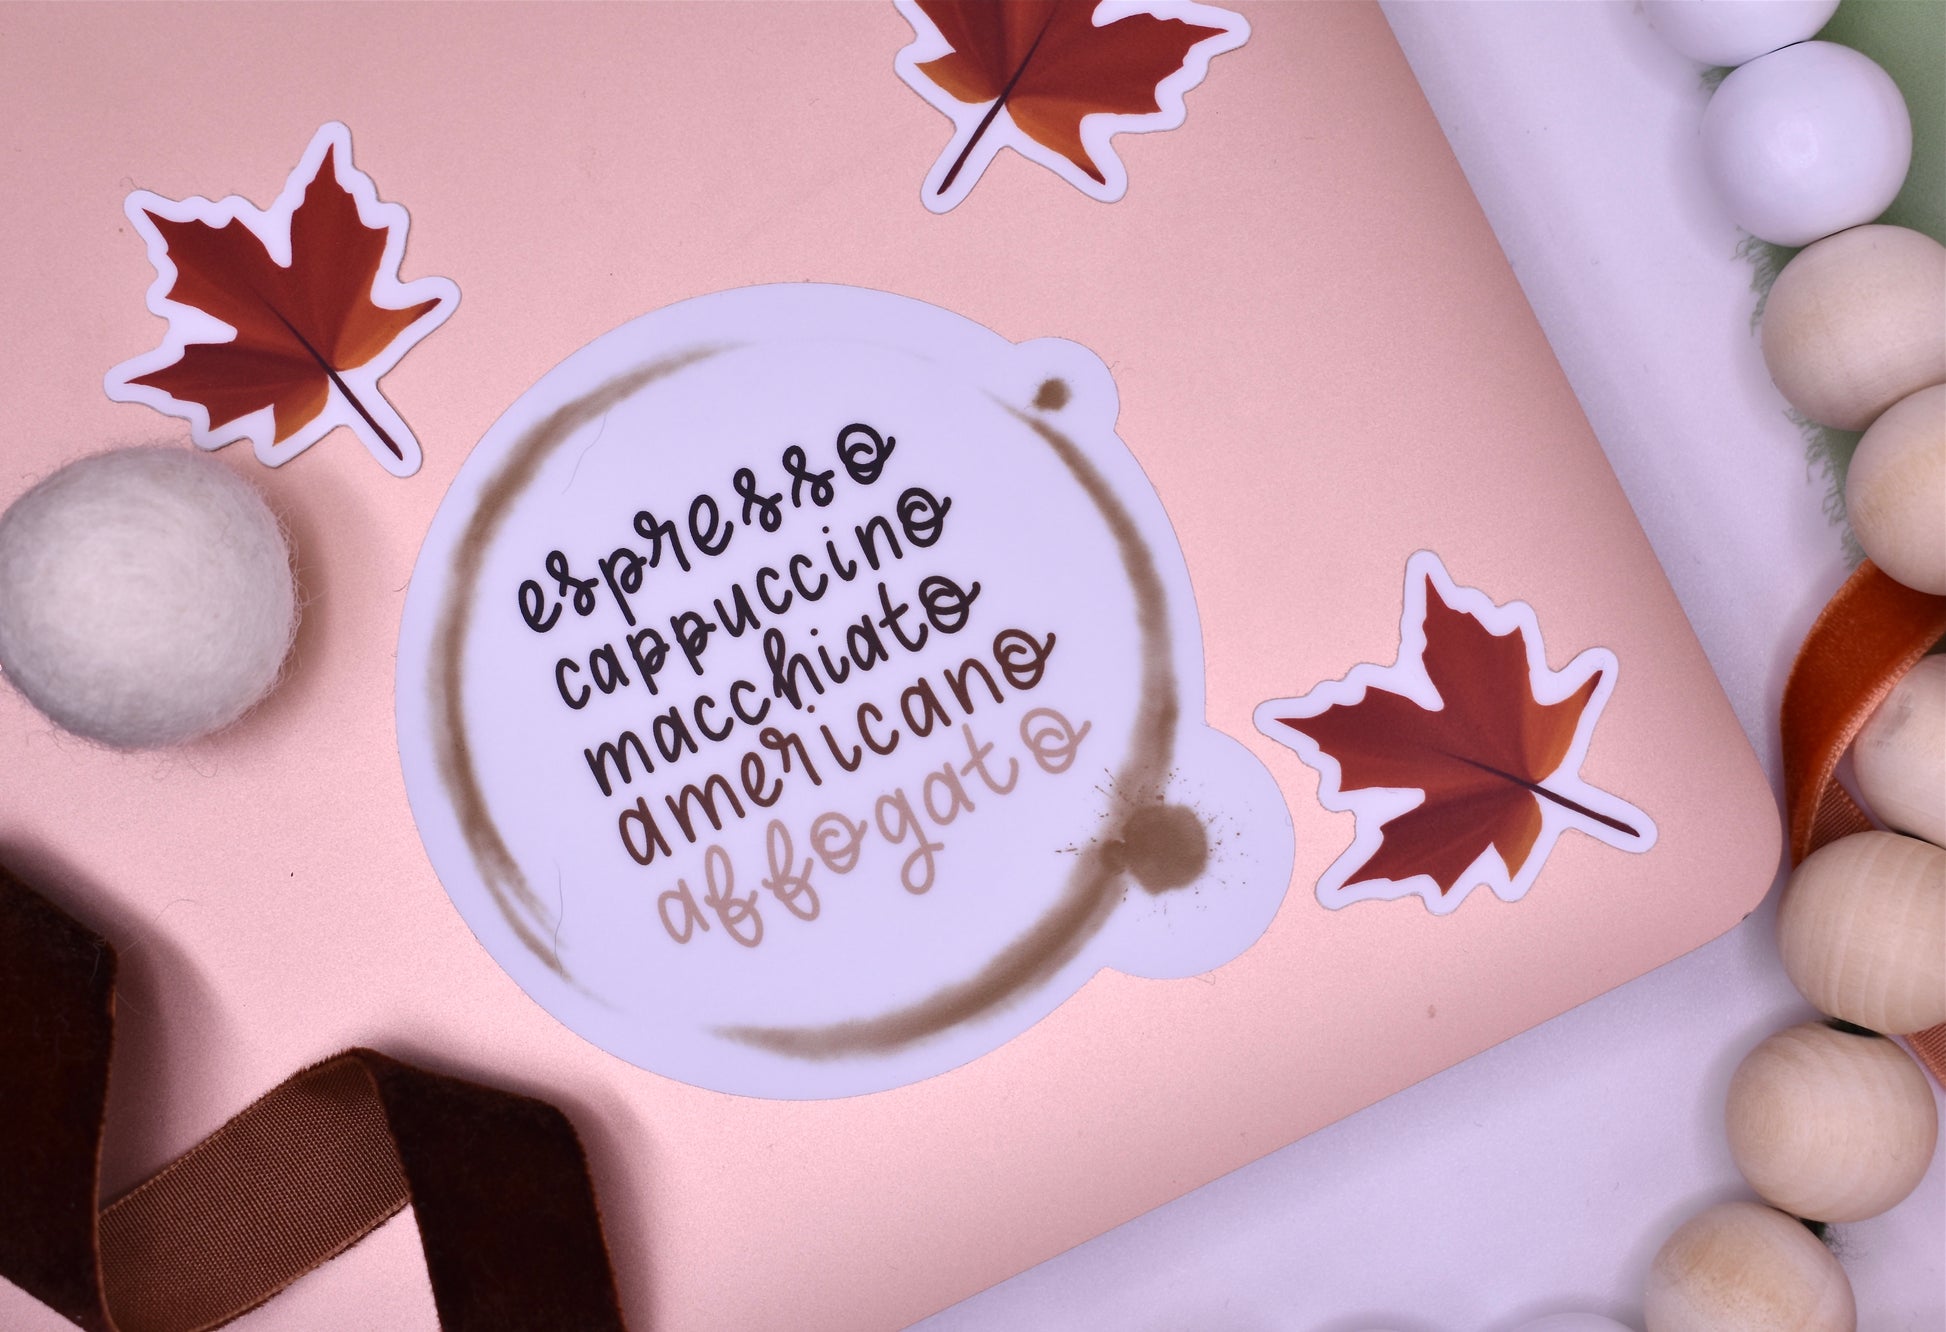 espresso
cappuccino
macchiato
americano
affogato